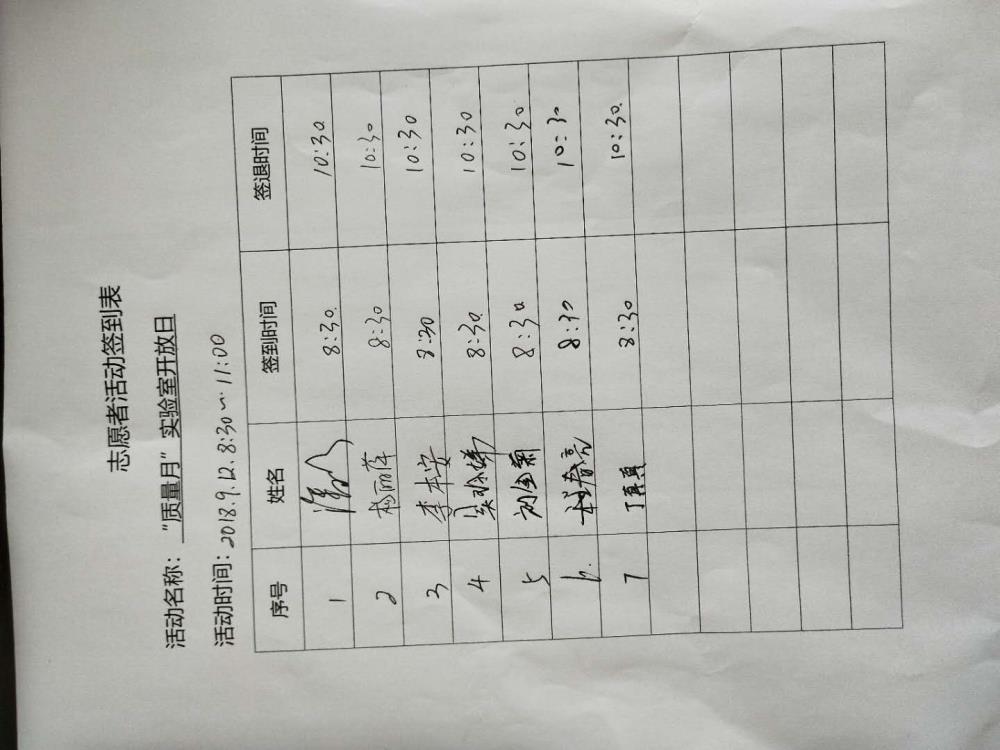 志愿者活动签到表
活动名称：“质量月”实验室开放日
活动时间：2018.9.12. 8:30~11:00
序号 姓名 签到时间 签退时间
1 8:30. 10:30.
2 杨丽萍 8:30 10:30
3 李本安 8:30 10:30
4 8:30. 10:30
5 刘金菊 8:30 10:30
6. 8:30 10:30
7 丁真真 8:30 10:30.